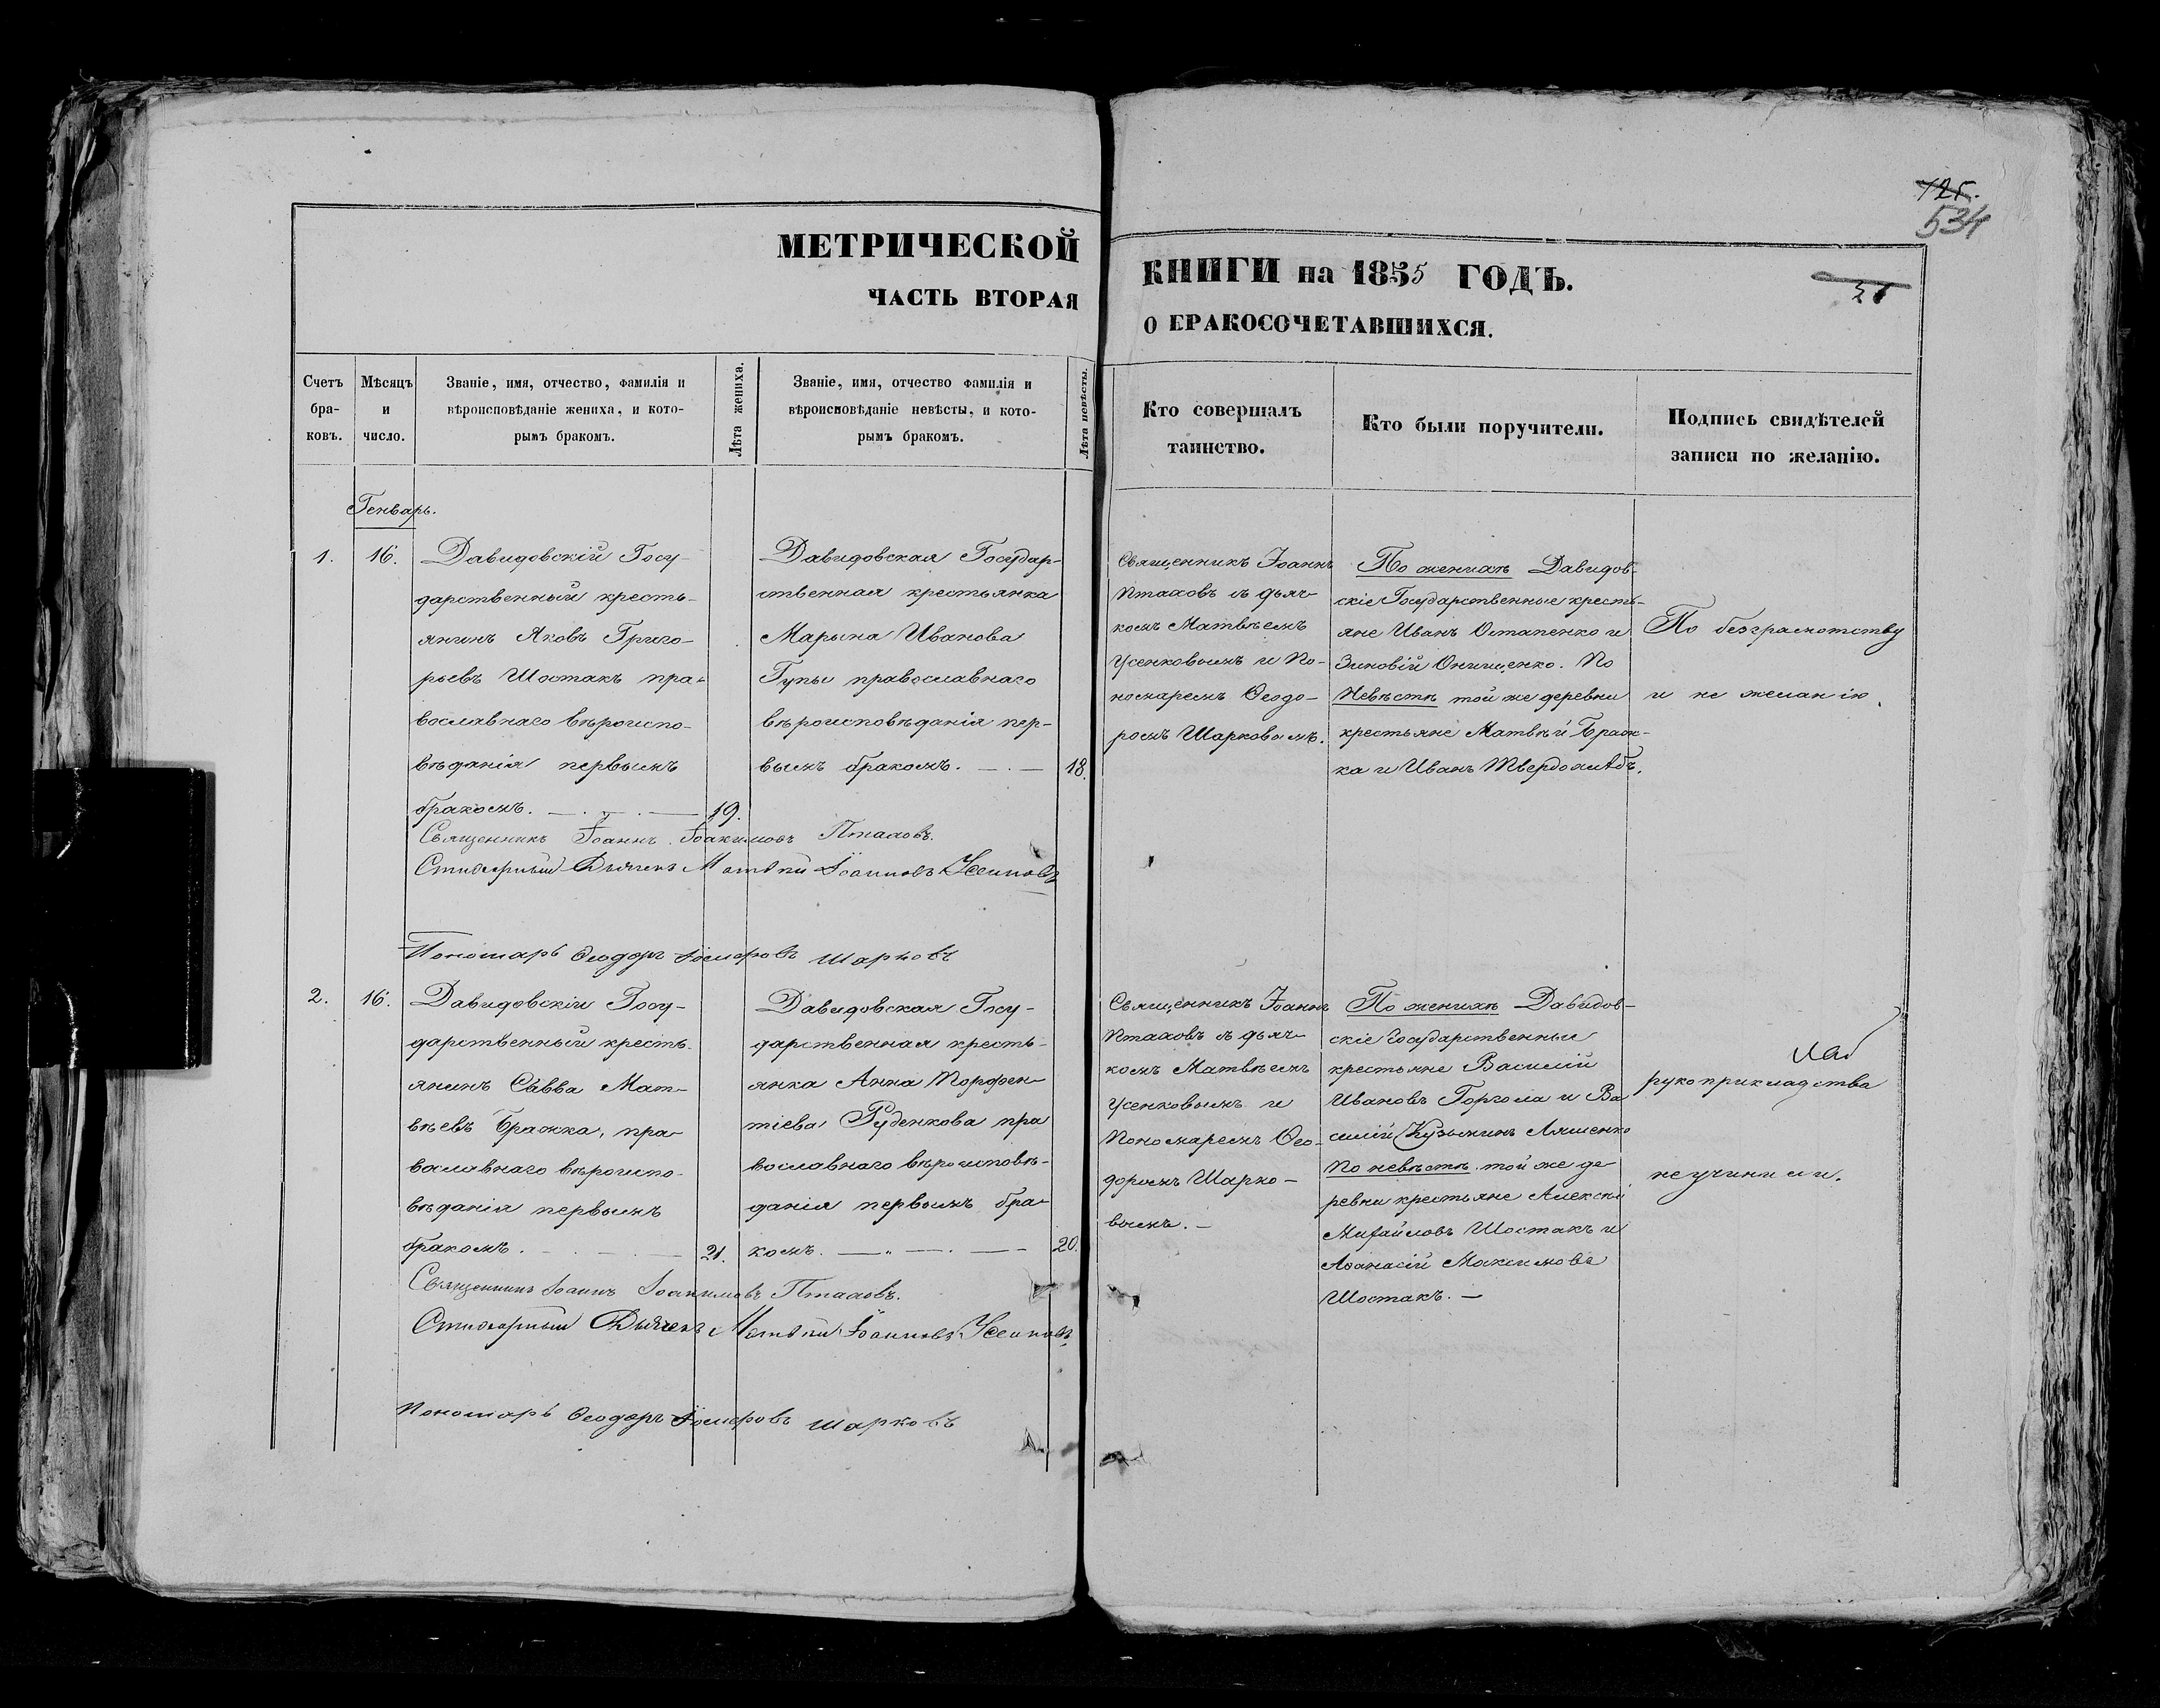 125.
534
МЕТРИЧЕСКОЙ
ЧАСТЬ ВТОРАЯ
КНИГИ на 1855 ГОДЪ.
О БРАКОСОЧЕТАВШИХСЯ.
Счетъ бра-ковъ.
Мѣсяцъ и число.
Званіе, имя, отчество, фамилія и
вѣроисповѣданіе жениха, и кото-
рымъ бракомъ.
Лѣта жениха.
Званіе, имя, отчество фамилія и
вѣроисповѣданіе невѣсты, и кото-
рымъ бракомъ.
Лѣта невѣсты.
Кто совершалъ
таинство.
Кто были поручители.
Подпись свидѣтелей
записи по желанію.
Генварь.
1.
16.
Давидовскій Госу-
дарственный кресть-
янинъ Яковъ Григо-
рьевъ Шостакъ пра-
вославнаго вѣроиспо-
вѣданія первымъ
бракомъ.
19.
Давидовская Государ-
ственная крестьянка
Марьина Иванова
Гупы православнаго
вѣроисповѣданія пер-
вымъ бракомъ.
18.
Священникъ Іоаннъ
Птаховъ съ дьяч-
комъ Матвѣемъ
Усенковымъ и По-
номаремъ Ѳеодо-
ромъ Шарковымъ.
По женихѣ Давидов-
скіе Государственные кресть-
яне Иванъ Остапенко и
Зиновій Онищенко. По
Невѣстѣ той же деревни
крестьяне Матвѣй Браж-
ка и Иванъ Твердохлѣбъ.
По безграмотству
и не желанію
Священникъ Іоаннъ Іоакимовъ Птаховъ.
Стихарный Дьячекъ Матвѣй Іоанновъ Усенковъ
Пономарь Ѳеодоръ Шарковъ
2.
16.
Давидовскій Госу-
дарственный кресть-
янинъ Савва Мат-
вѣевъ Бражка, пра-
вославнаго вѣроиспо-
вѣданія первымъ
бракомъ.
21.
Давидовская Госу-
дарственная кресть-
янка Анна Порфен-
тіева Руденкова пра
вославнаго вѣроисповѣ-
данія первымъ бра-
комъ.
20.
Священникъ Іоаннъ
Птаховъ съ дьяч-
комъ Матвѣемъ
Усенковымъ и
Пономаремъ Ѳео-
доромъ Шарко-
вымъ.
По женихѣ Давидов-
скіе Государственные
крестьяне Василій
Ивановъ Горгола и Ва
силій Кузьминъ Ляшенко
По невѣстѣ той же де
ревни крестьяне Алексѣй
Михайловъ Шостакъ и
Аѳанасій Максимовъ
Шостакъ.
рукоприкладства
не учинили.
Священникъ Іоаннъ Іоакимовъ Птаховъ.
Стихарный Дьячекъ Матвѣй Іоанновъ Усенковъ
Пономарь Ѳеодоръ Шарковъ